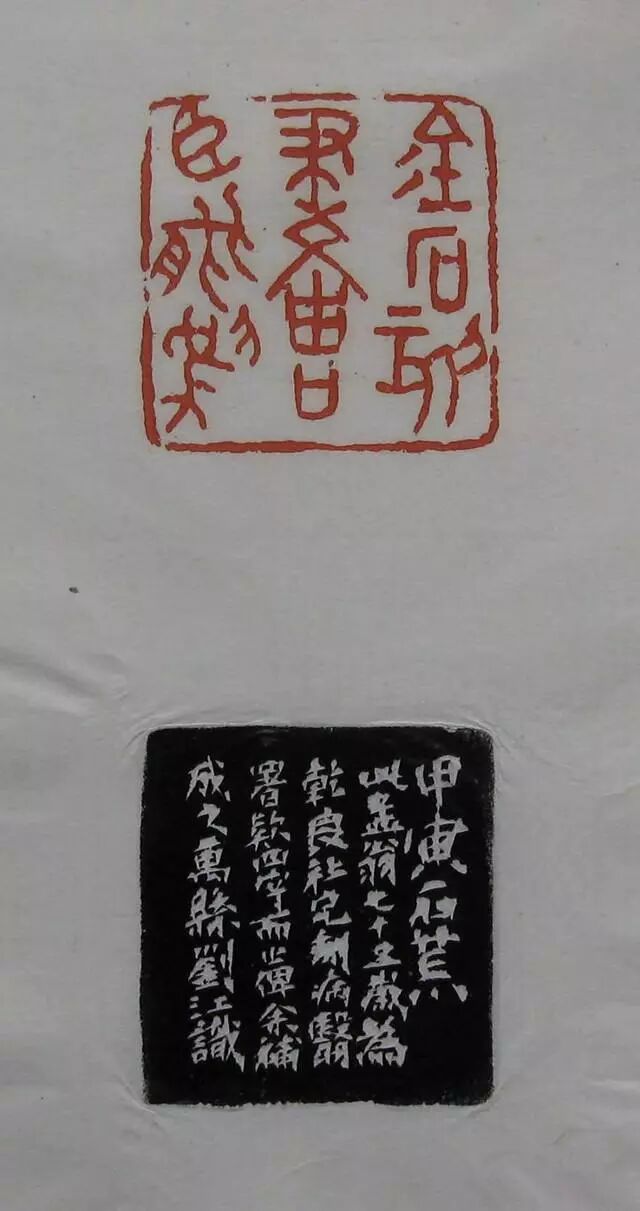 金石刻
畫
臣能為
甲寅石荒
此孟翁七十五歲為
乾良社兄病翳
署款四字而止俾余補
成之萬縣劉江識